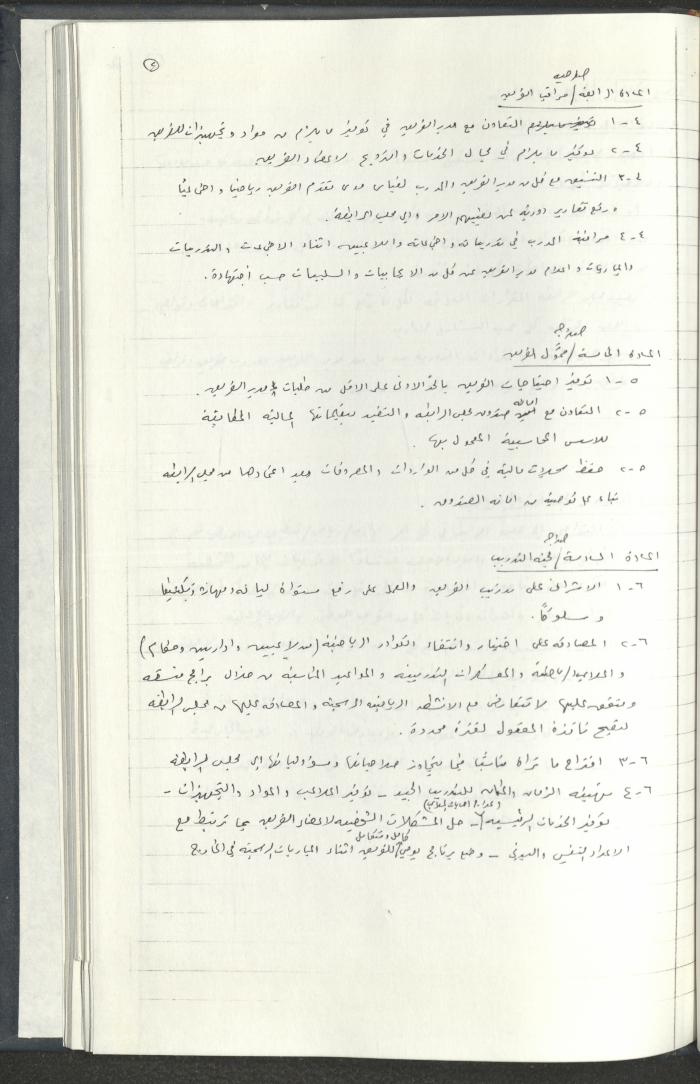 ٢
صلاحية
المادة الرابعة / مراقب الفريق
٤-١ التعاون مع مدير الفريق في توفير ما يلزم من مواد وتجهيزات للفريق
٤-٢ توفير ما يلزم في مجال الخدمات والترويح لاعضاء الفريق
٤-٣ التنسيق مع كل من مدير الفريق والمدرب لقياس مدى تقدم الفريق رياضيا واجتماعيا
ورفع تقارير دورية لمن يعنيهم الامر والى مجلس الرابطة .
٤-٤ مراقبة المدرب في تدريباته واجتماعاته واللاعبين اثناء الاجتماعات والتدريبات
والمباريات واعلام مدير الفريق عن كل من الايجابيات والسلبيات حسب اجتهاده .
صلاحية
المادة الخامسة / ممول الفريق
٥-١ توفير احتياجات الفريق بالحد الادنى على الاقل من طلبات مدير الفريق .
٥-٢ التعاون مع امانة صندوق مجلس الرابطة والتقيد بتعليماتها المالية المطابقة
للاسس المحاسبية المعمول بها .
٥-٢ حفظ سجلات مالية في كل من الواردات والمصروفات بعد اعتمادها من مجلس الرابطة
بناء على توصية من امانة الصندوق .
صلاحية
المادة السادسة / لجنة التدريب
٦-١ الاشراف على تدريب الفريق والعمل على رفع مستواه لياقة ومهارة وتكتيكا
وسلوكاً .
٦-٢ المصادقة على اختيار وانتقاء الكوادر الرياضية (من لاعبين واداريين وحكام)
والمعسكرات التدريبية والمواعيد المناسبة من خلال برامج منسقة
ومتفق عليها لا تتعارض مع الانشطة الرياضية الرسمية والمصادقة عليها من مجلس الرابطة
لتصبح نافذة المفعول لفترة محددة .
٦-٣ اقتراح ما تراه مناسبا فيما يتجاوز صلاحياتها ومسؤولياتها الى مجلس الرابطة
٦-٤ تهيئة الزمان والمكان للتدريب الجيد - توفير الملاعب والمواد والتجهيزات -
توفير الخدمات الرئيسية - حل المشكلات الشخصية لاعضاء الفريق بما ترتبط مع
كامل ومتكامل
الاعداد النفسي والبدني - وضع برنامج يومي للفريق اثناء المباريات الرسمية في الخارج